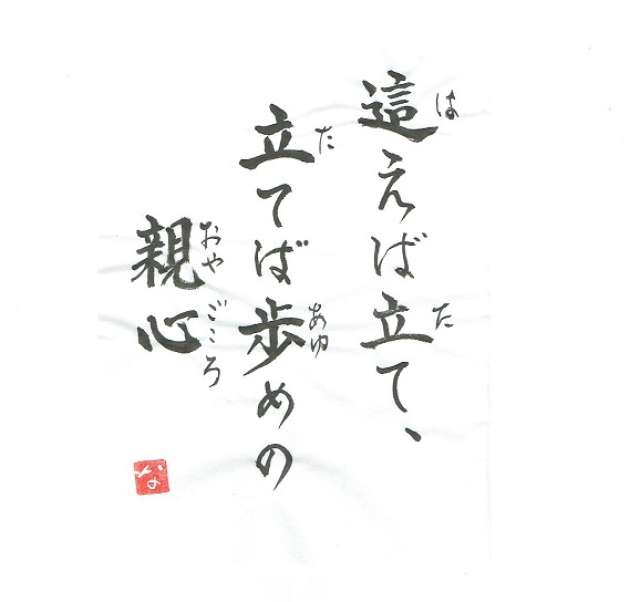 這えば立て、
は た
立てば歩めの
た あゆ
親心
おや ごころ
な